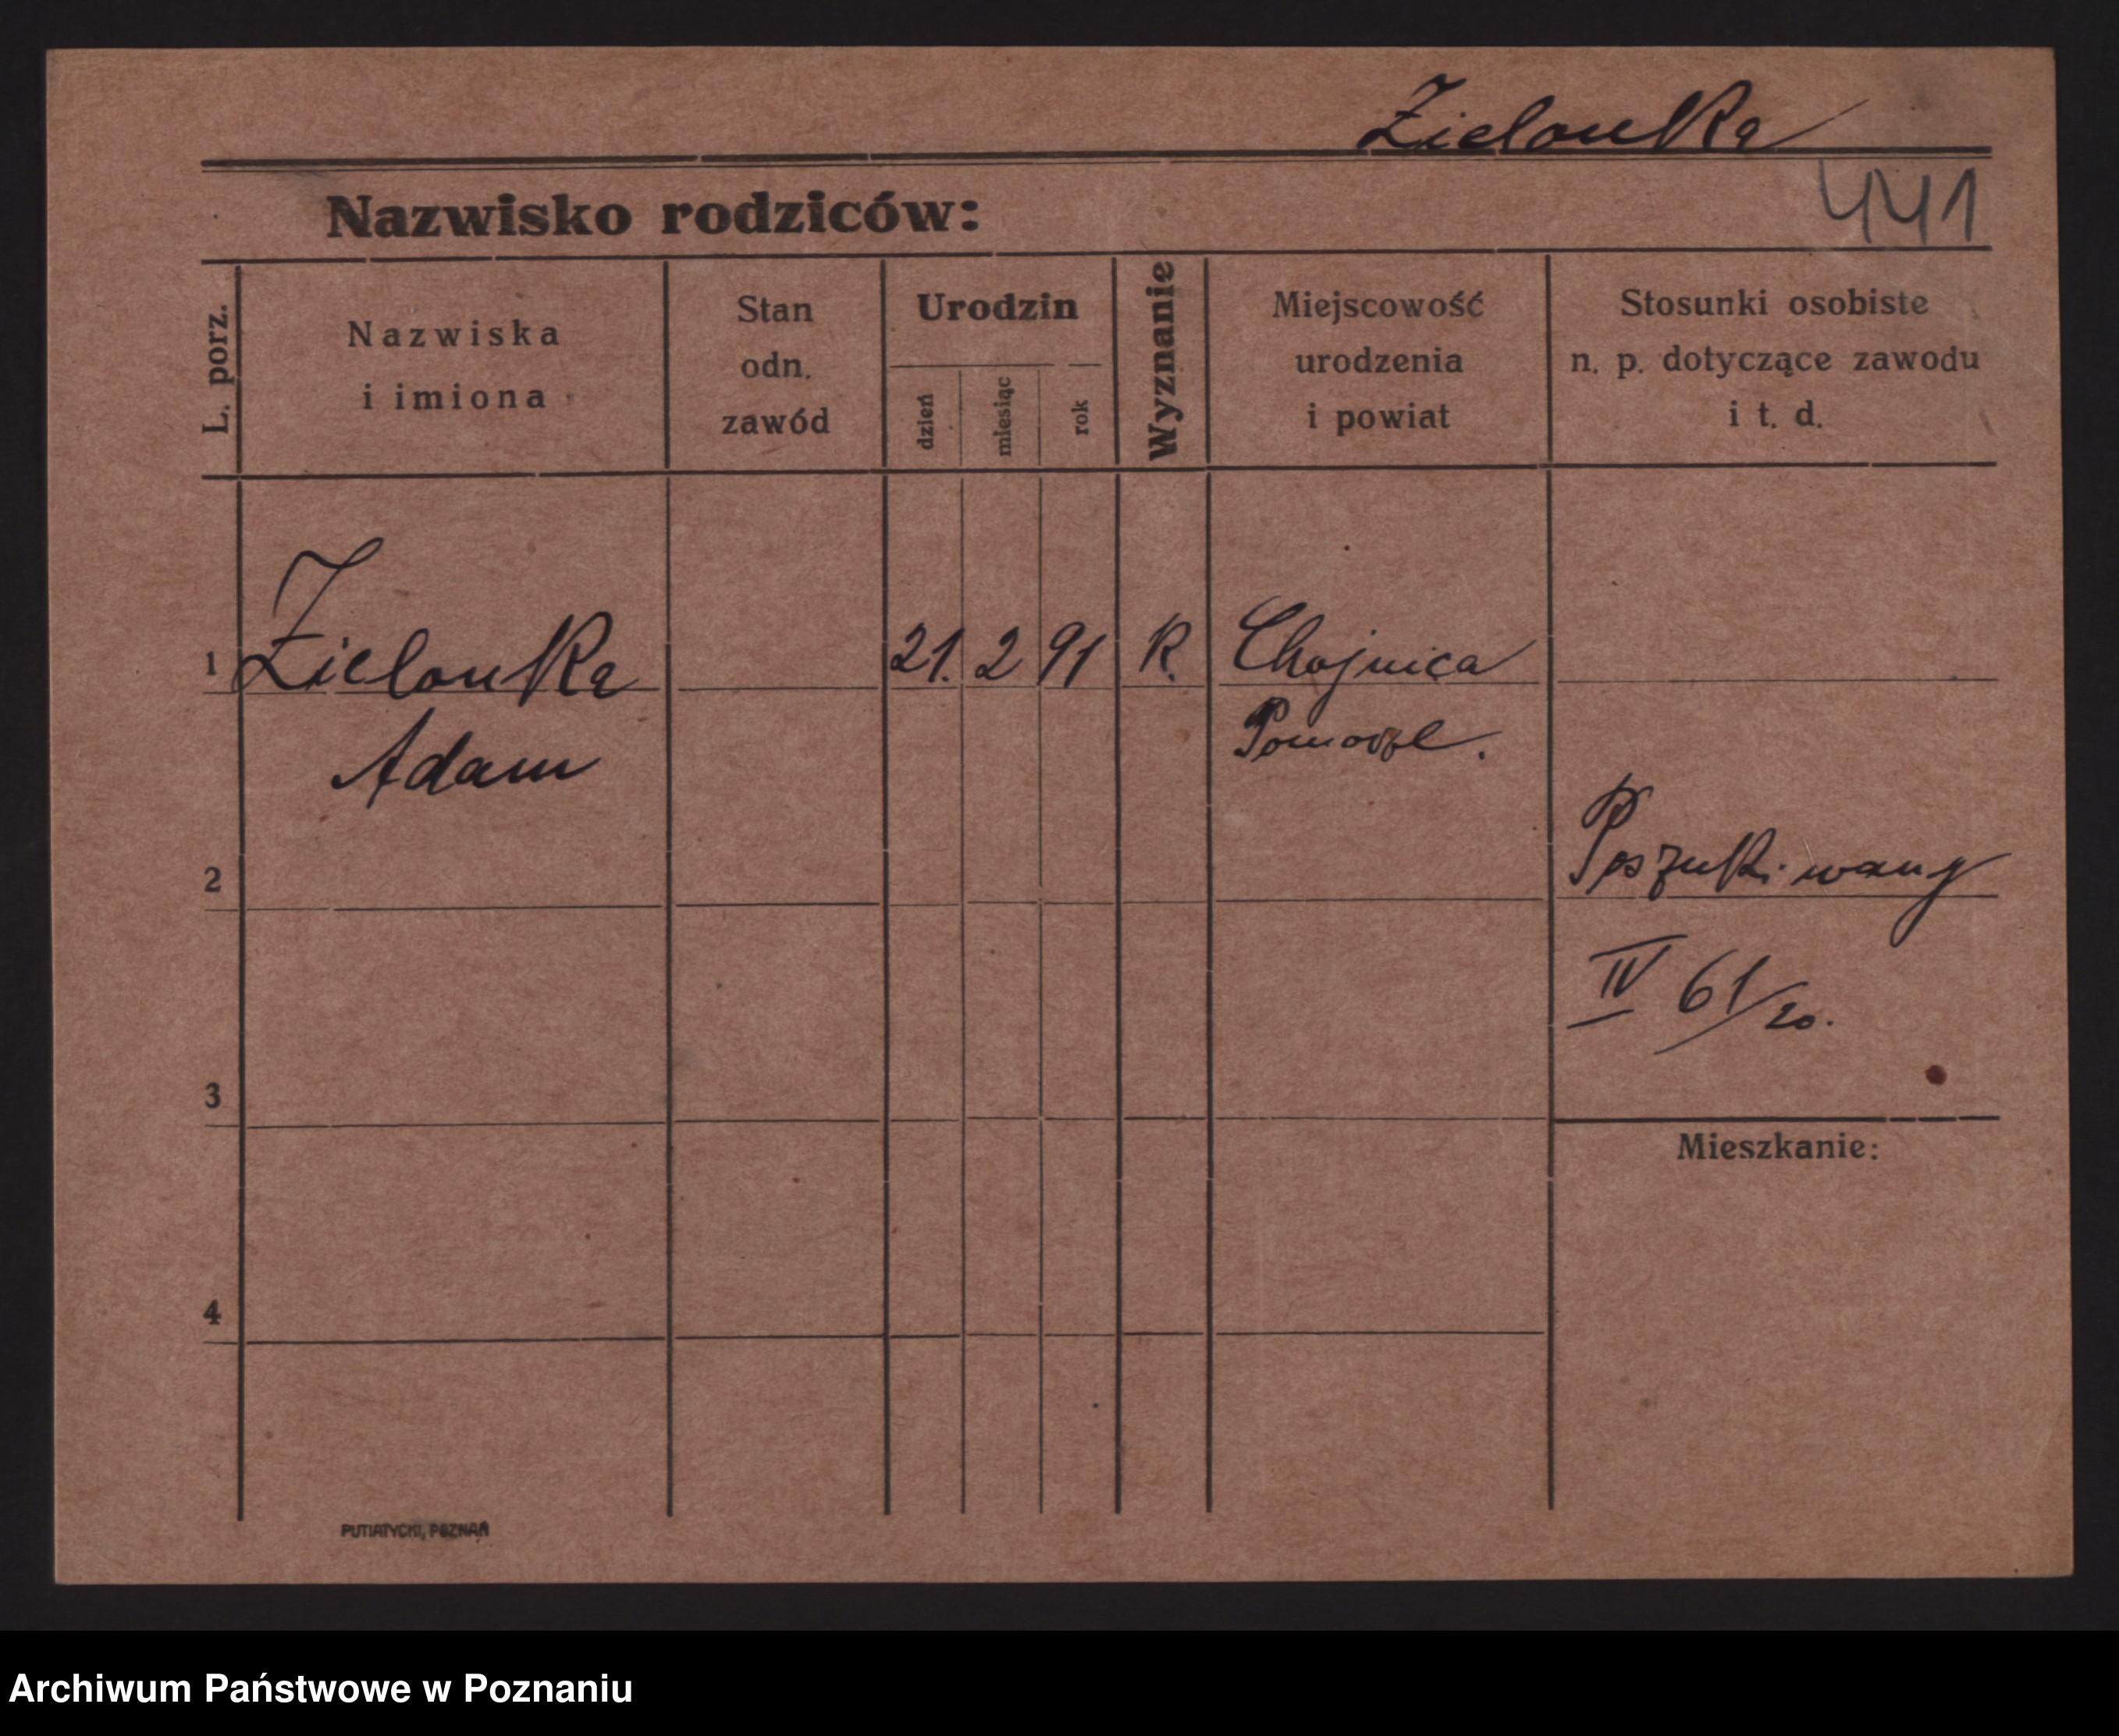 Zielonka
441
Nazwisko rodziców:
L. porz.
Nazwiska
i imiona
Stan
odn.
zawód
Urodzin
dzień
miesiąc
rok
Wyznanie
Miejscowość
urodzenia
i powiat
Stosunki osobiste
n. p. dotyczące zawodu
i t. d.
1 Zielonka 21. 2 91 R. Chojnica
Adam
2
Poszukiwany
IV 61/20.
3
Mieszkanie:
4
PUTIATYCKI, POZNAŃ
Archiwum Państwowe w Poznaniu